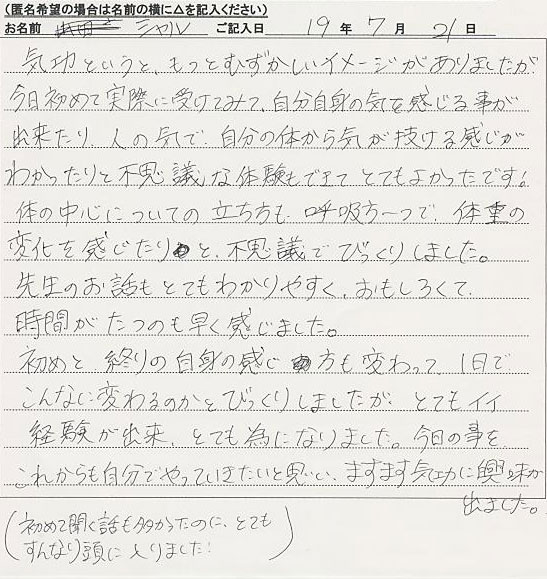 (匿名希望の場合は名前の横に△を記入ください)
お名前 シャル ご記入日 19年7月21日
気功というと、もっとむずかしいイメージがありましたが
今日初めて実際に受けてみて、自分自身の気を感じる事が
出来たり、人の気で、自分の体から気が抜ける感じが
わかったりと不思議な体験もできて とてもよかったです!
体の中心についての立ち方も 呼吸方一つで、体重の
変化を感じたりと、不思議でびっくりしました。
先生のお話もとてもわかりやすく、おもしろくて、
時間がたつのも早く感じました。
初めと 終りの自身の感じ方も変わって、1日で
こんなに変わるのかとびっくりしましたが、とてもイイ
経験が出来、とても為になりました。今日の事を
これからも自分でやっていきたいと思い、ますます気功に興味が
出ました。
(初めて聞く話も多かったのに、とても
すんなり頭に入りました!)